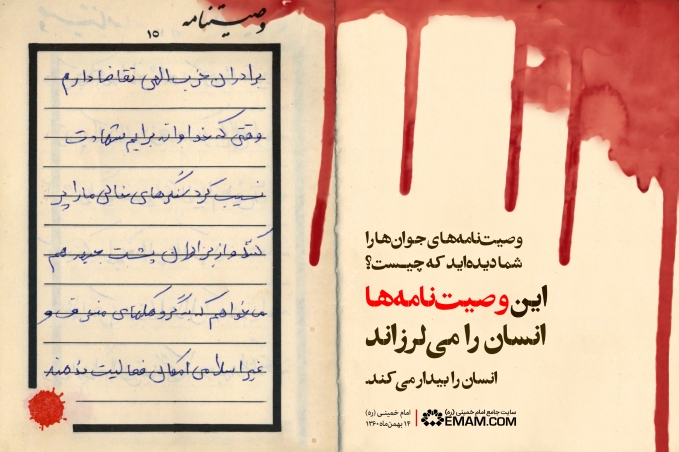 وصیتنامه
۱۵
برادران حزب الهی تقاضا دارم
وقتی که خداوند برایم شهادت
نصیب کرد سنگرهای خالی ما را پر
کنند و از برادران پشت جبهه هم
میخواهم که به گروهکهای منحرف و
غیر اسلامی امکان فعالیت ندهند
وصیت‌نامه‌های جوان‌ها را
شما دیده‌اید که چیست؟
این وصیت‌نامه‌ها
انسان را می‌لرزاند
انسان را بیدار می‌کند.
امام خمینی (ره)
۱۴ بهمن‌ماه ۱۳۶۰
سایت جامع امام خمینی (ره)
EMAM.COM